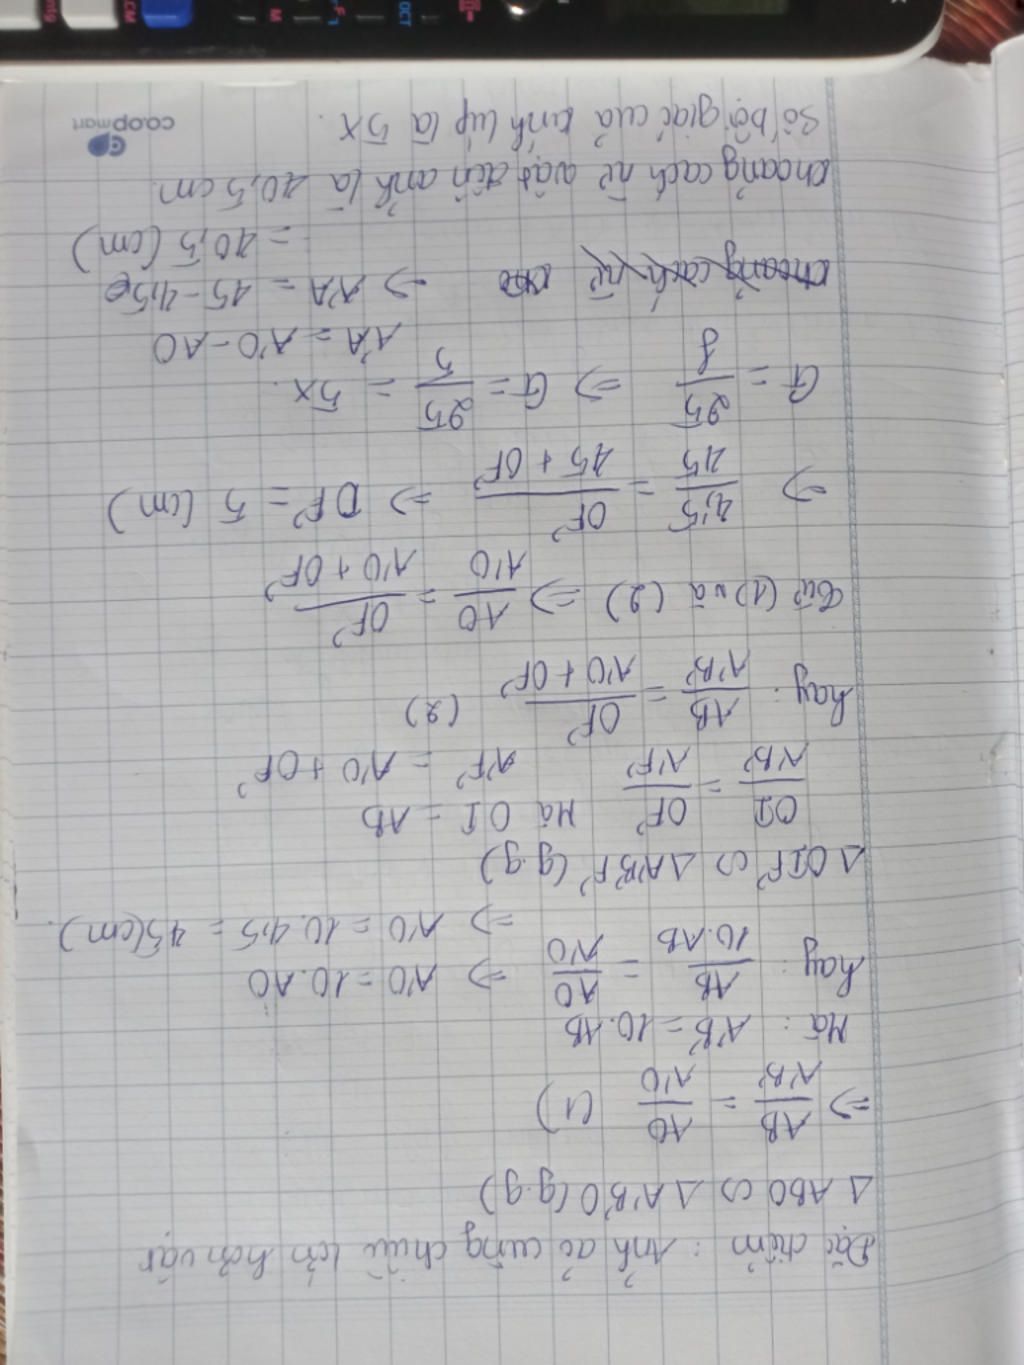 Đặc điểm : Ảnh ảo cùng chiều lớn hơn vật
Δ ABO ∽ Δ A'B'O (g.g)
⇒ AB/A'B' = AO/A'O (1)
Mà : A'B' = 10.AB
hay : AB/10.AB = AO/A'O ⇒ A'O = 10.AO
⇒ A'O = 10.4,5 = 45(cm).
Δ OIF' ∽ Δ A'B'F' (g.g)
OI/A'B' = OF'/A'F' Mà OI = AB
A'F' = A'O + OF'
hay : AB/A'B' = OF'/A'O + OF' (2)
Từ (1) và (2) ⇒ AO/A'O = OF'/A'O + OF'
⇒ 4,5/45 = OF'/45 + OF' ⇒ OF' = 5 (cm)
G = 25/f ⇒ G = 25/5 = 5X.
A'A = A'O - AO
khoảng cách từ ⇒ A'A = 45 - 4,5
= 40,5 (cm)
khoảng cách từ vật đến ảnh là 40,5 cm.
Số bội giác của kính lúp là 5X.
co.opmart
CM
M
F
OCT